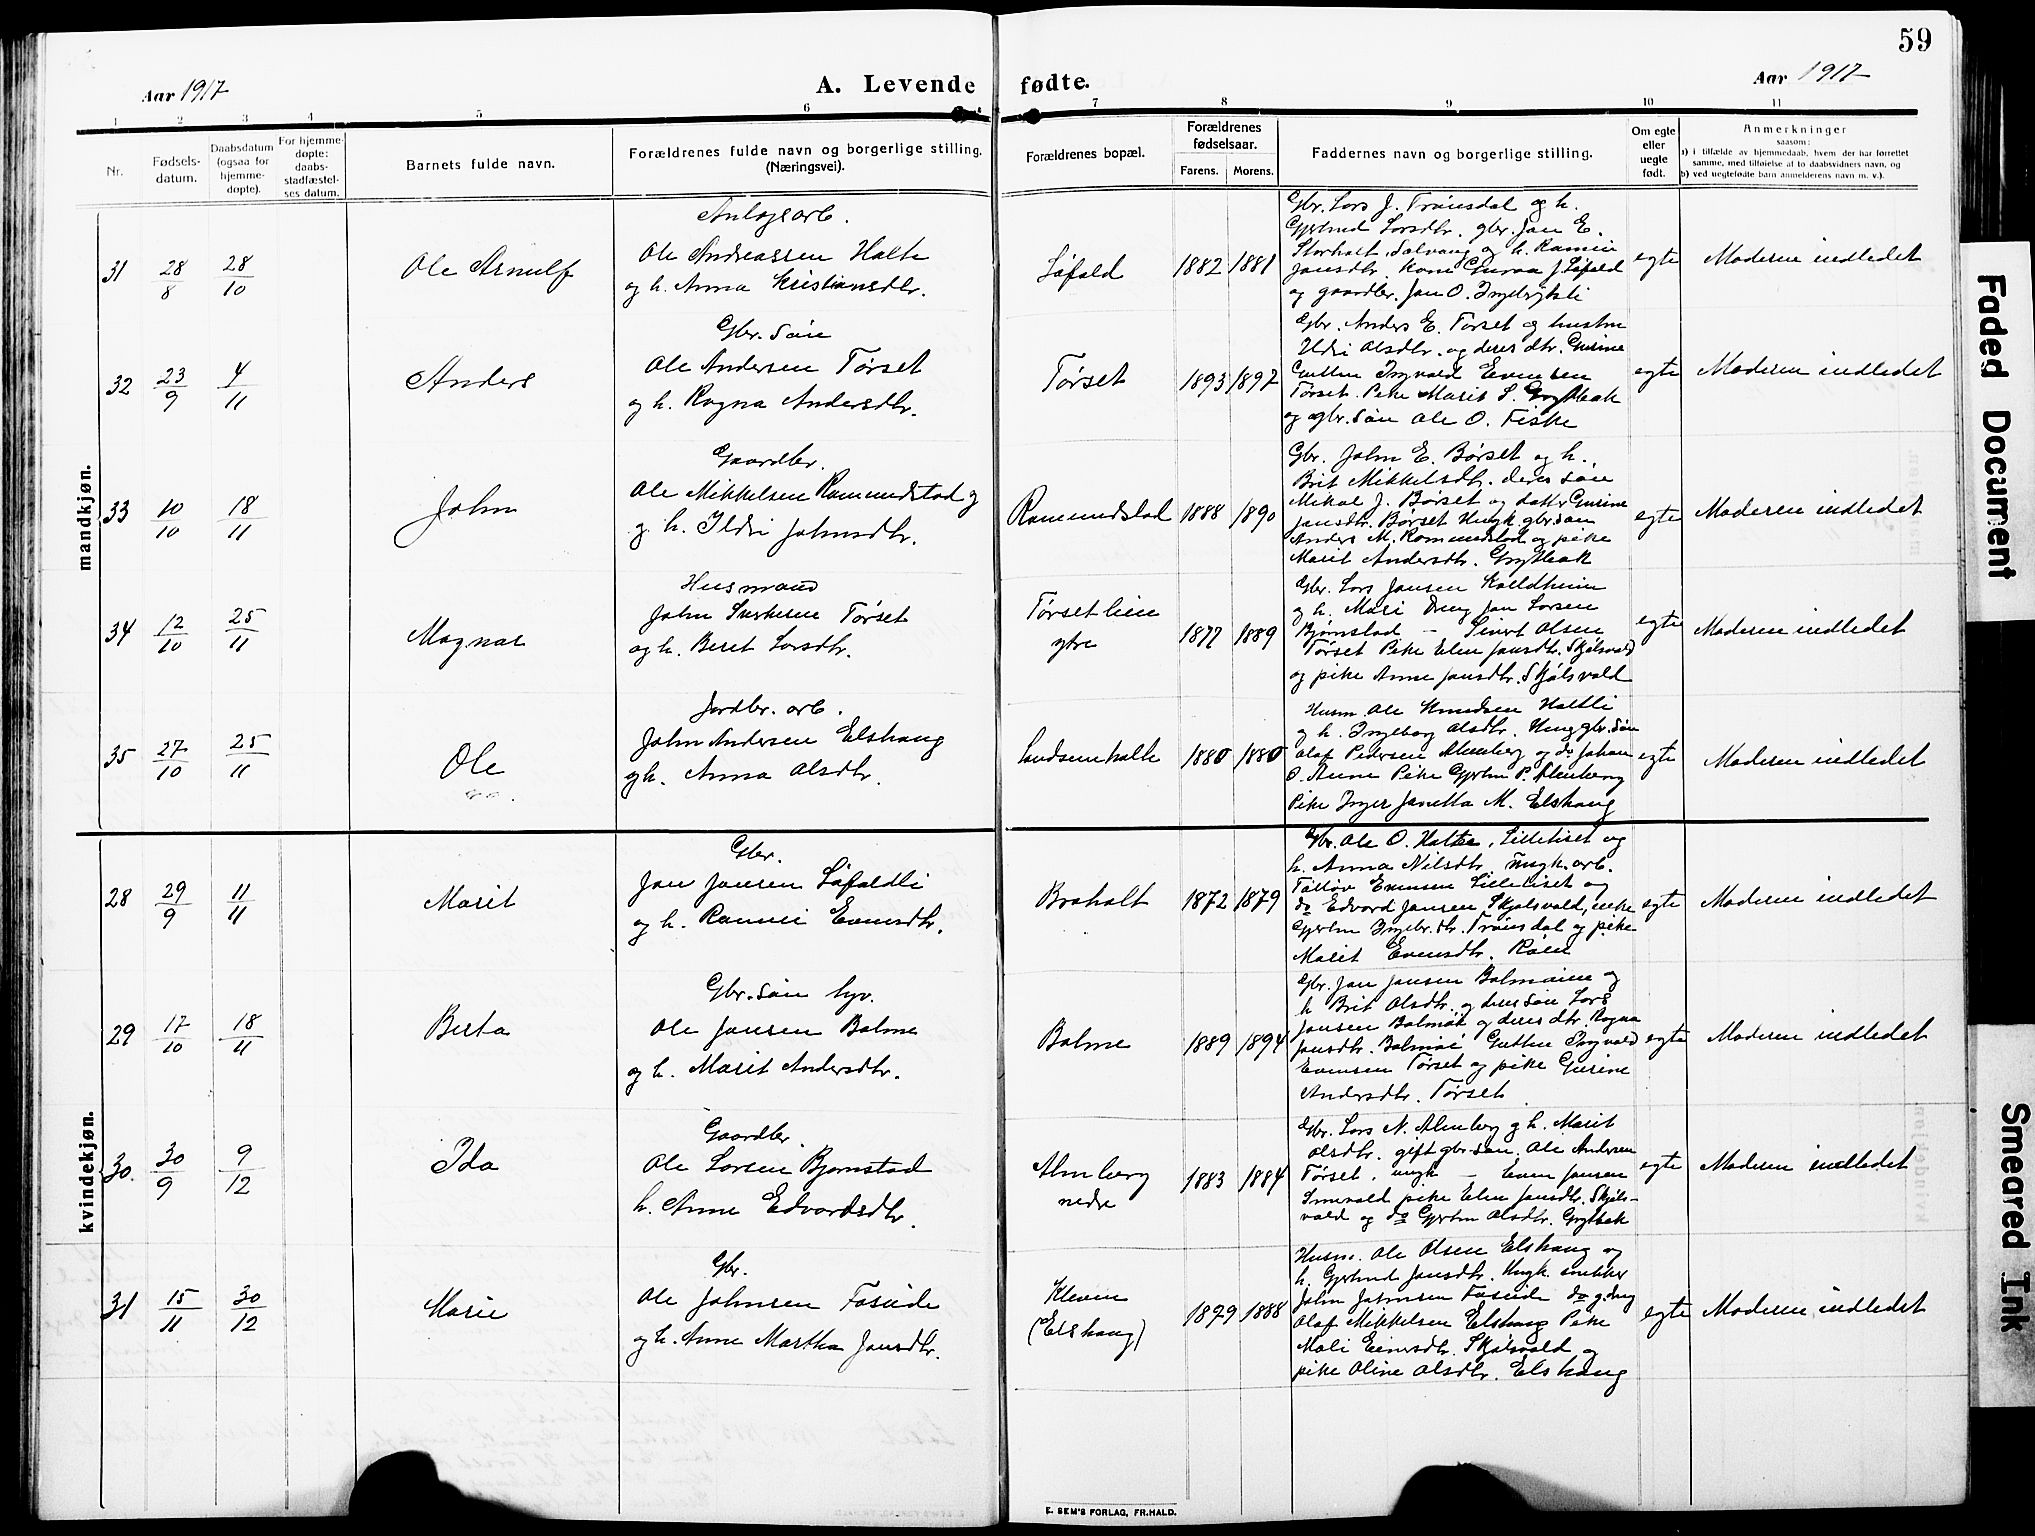 59
Aar 1917
A. Levende fødte.
Aar 1917
1 2 3 4 5 6 7 8 9 10 11
Nr.
Fødsels-
datum.
Daabsdatum
(ogsaa for
hjemme-
døpte).
For hjemme-
døpte:
daabs-
stadfæstel-
ses datum.
Barnets fulde navn.
Forældrenes fulde navn og borgerlige stilling.
(Næringsvei).
Forældrenes bopæl.
Forældrenes
fødselsaar.
Farens. Morens.
Faddernes navn og borgerlige stilling.
Om egte
eller
uegte
født.
Anmerkninger
saasom:
a) i tilfælde av hjemmedaab, hvem der har forrettet
samme, med tilføielse af to daabsvidners navn, og
b) ved uegtefødte barn anmelderens navn m. v.).
mandkjøn.
31
28/8
28/10
Ole Arnulf
Anlegsarb.
Ole Andreassen Halte
og h. Anna Kristiansdtr.
Løfald
1882 1881
Gbr. Lars J. Trønsdal og h.
Gjertrud Larsdtr. gbr. Jan E.
Storholt, Salvang og h. Rannei
Jansdtr. Kone Guroa J. Løfald
og gaardbr. Jan O.
egte
Moderen indledet
32
23/9
4/11
Anders
Gbr. søn
Ole Andersen Tørset
og h. Ragna Andersdtr.
Tørset
1893 1897
Gbr. Anders E. Tørset og hustru
Ildri Olsdtr. og deres dtr. Gurine
Gutten Ingvald Evensen
Tørset. Pike Marit L. Grytbak
og gbr. søn Ole O. Fiske
egte
Moderen indledet
33
10/10
18/11
John
Gaardbr.
Ole Mikkelsen Romundstad
og h. Ildri Johnsdtr.
Romundstad
1888 1890
Gbr. John E. Børset og h.
Brit Mikkelsdtr. deres søn
Mikal J. Børset og datter Gurine
Jansdtr. Børset Ungk. gbr. søn
Anders M. Romundstad og pike
Marit Andersdtr. Grytbak
egte
Moderen indledet
34
12/10
25/11
Magnar
Husmand
John Sivertsen Tørset
og h. Beret Larsdtr.
Tørsetlien
ytre
1877 1889
Gbr. Lars Jansen Kveldheim
og h. Mari Dreng Jan Larsen
Bjørnstad – Sivert Olsen
Tørset Pike Elen Jansdtr. Skjølsvold
og pike Anne Jansdtr. Skjølsvold
egte
Moderen indledet
35
27/10
25/11
Ole
Jordbr. arb.
John Andersen Elshaug
og h. Anna Olsdtr.
1880 1880
Husm. Ole Knudsen Holtli
og h. Ingeborg Olsdtr. Ung gbr. søn
Olaf Pedersen Almberg og do Johan
O. Aune Pike Gjertru P. Almberg
Pike Inger Janetta M. Elshaug
egte
Moderen indledet
kvindekjøn.
28
29/9
11/11
Marit
Gbr.
Jan Jansen Løfaldli
og h. Rannei Evensdtr.
Braholt
1872 1879
Gbr. Ole O. Halten, Lilleliset og
h. Anna Nilsdtr. Ungk. arb.
Tolløv Evensen Lilleliset og
do Edvard Jansen Skjølsvold, enke
Gjertru Ingebr.dtr. Trønsdal og pike
Marit Evensdtr. Røen
egte
Moderen indledet
29
17/10
18/11
Berta
Gbr. søn
Ole Jansen Bolme
og h. Marit Andersdtr.
Bolme
1889 1894
Gbr. Jan Jansen Bolmøien og
h Brit Olsdtr. og deres søn Lars
Jansen Bolmøi og deres dtr. Ragna
Jansdtr. Bolmøi Gutten Ingvald
Evensen Tørset og pike Gurine
Andersdtr. Tørset.
egte
Moderen indledet
30.
30/9
9/12
Ida
Gaardbr.
Ole Larsen Bjørnstad
h. Anne Edvardsdtr.
Almberg
nedre
1883 1884
Gbr. Lars N. Almberg og h. Marit
Olsdtr. gift gbr. søn. Ole Andersen
Tørset. ungk – Even Jansen
pike Elen Jansdtr. Skjøls-
vold og do Gjertru Olsdtr. Grytbak
egte
Moderen indledet
31
15/11
30/12
Marie
Gbr.
Ole Johnsen Foseide
og h. Anne Martha Jansdtr.
Kleven
(Elshaug)
1879 1888
Husm. Ole Olsen Elshaug og
h. Gjertrud Jansdtr. Ungk. snekker
John Johnsen Foseide do g. dreng
Olaf Mikkelsen Elshaug Pike
Mali Einersdtr. Skjølsvold og
pike Oline Olsdtr. Elshaug
egte
Moderen indledet
E. SEM'S FORLAG, FR.HALD.
Faded Document
Smeared Ink